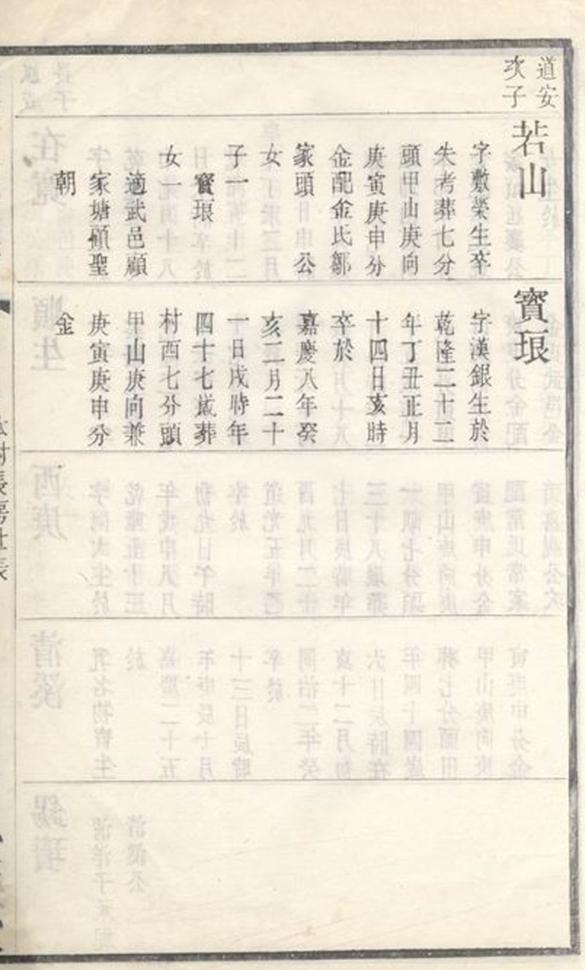 道安
次子
若山
字敷榮生卒
失考葬七分
頭甲山庚向
庚寅庚申分
金配金氏鄒
家頭 公
女
子一
寳琅
女一
適武邑顧
家塘顧聖
朝
寳琅
字漢銀生於
乾隆二十二
年丁丑正月
十四日亥時
卒於
嘉慶八年癸
亥二月二十
一日戌時年
四十七歲葬
村西七分頭
甲山庚向兼
庚寅庚申分
金